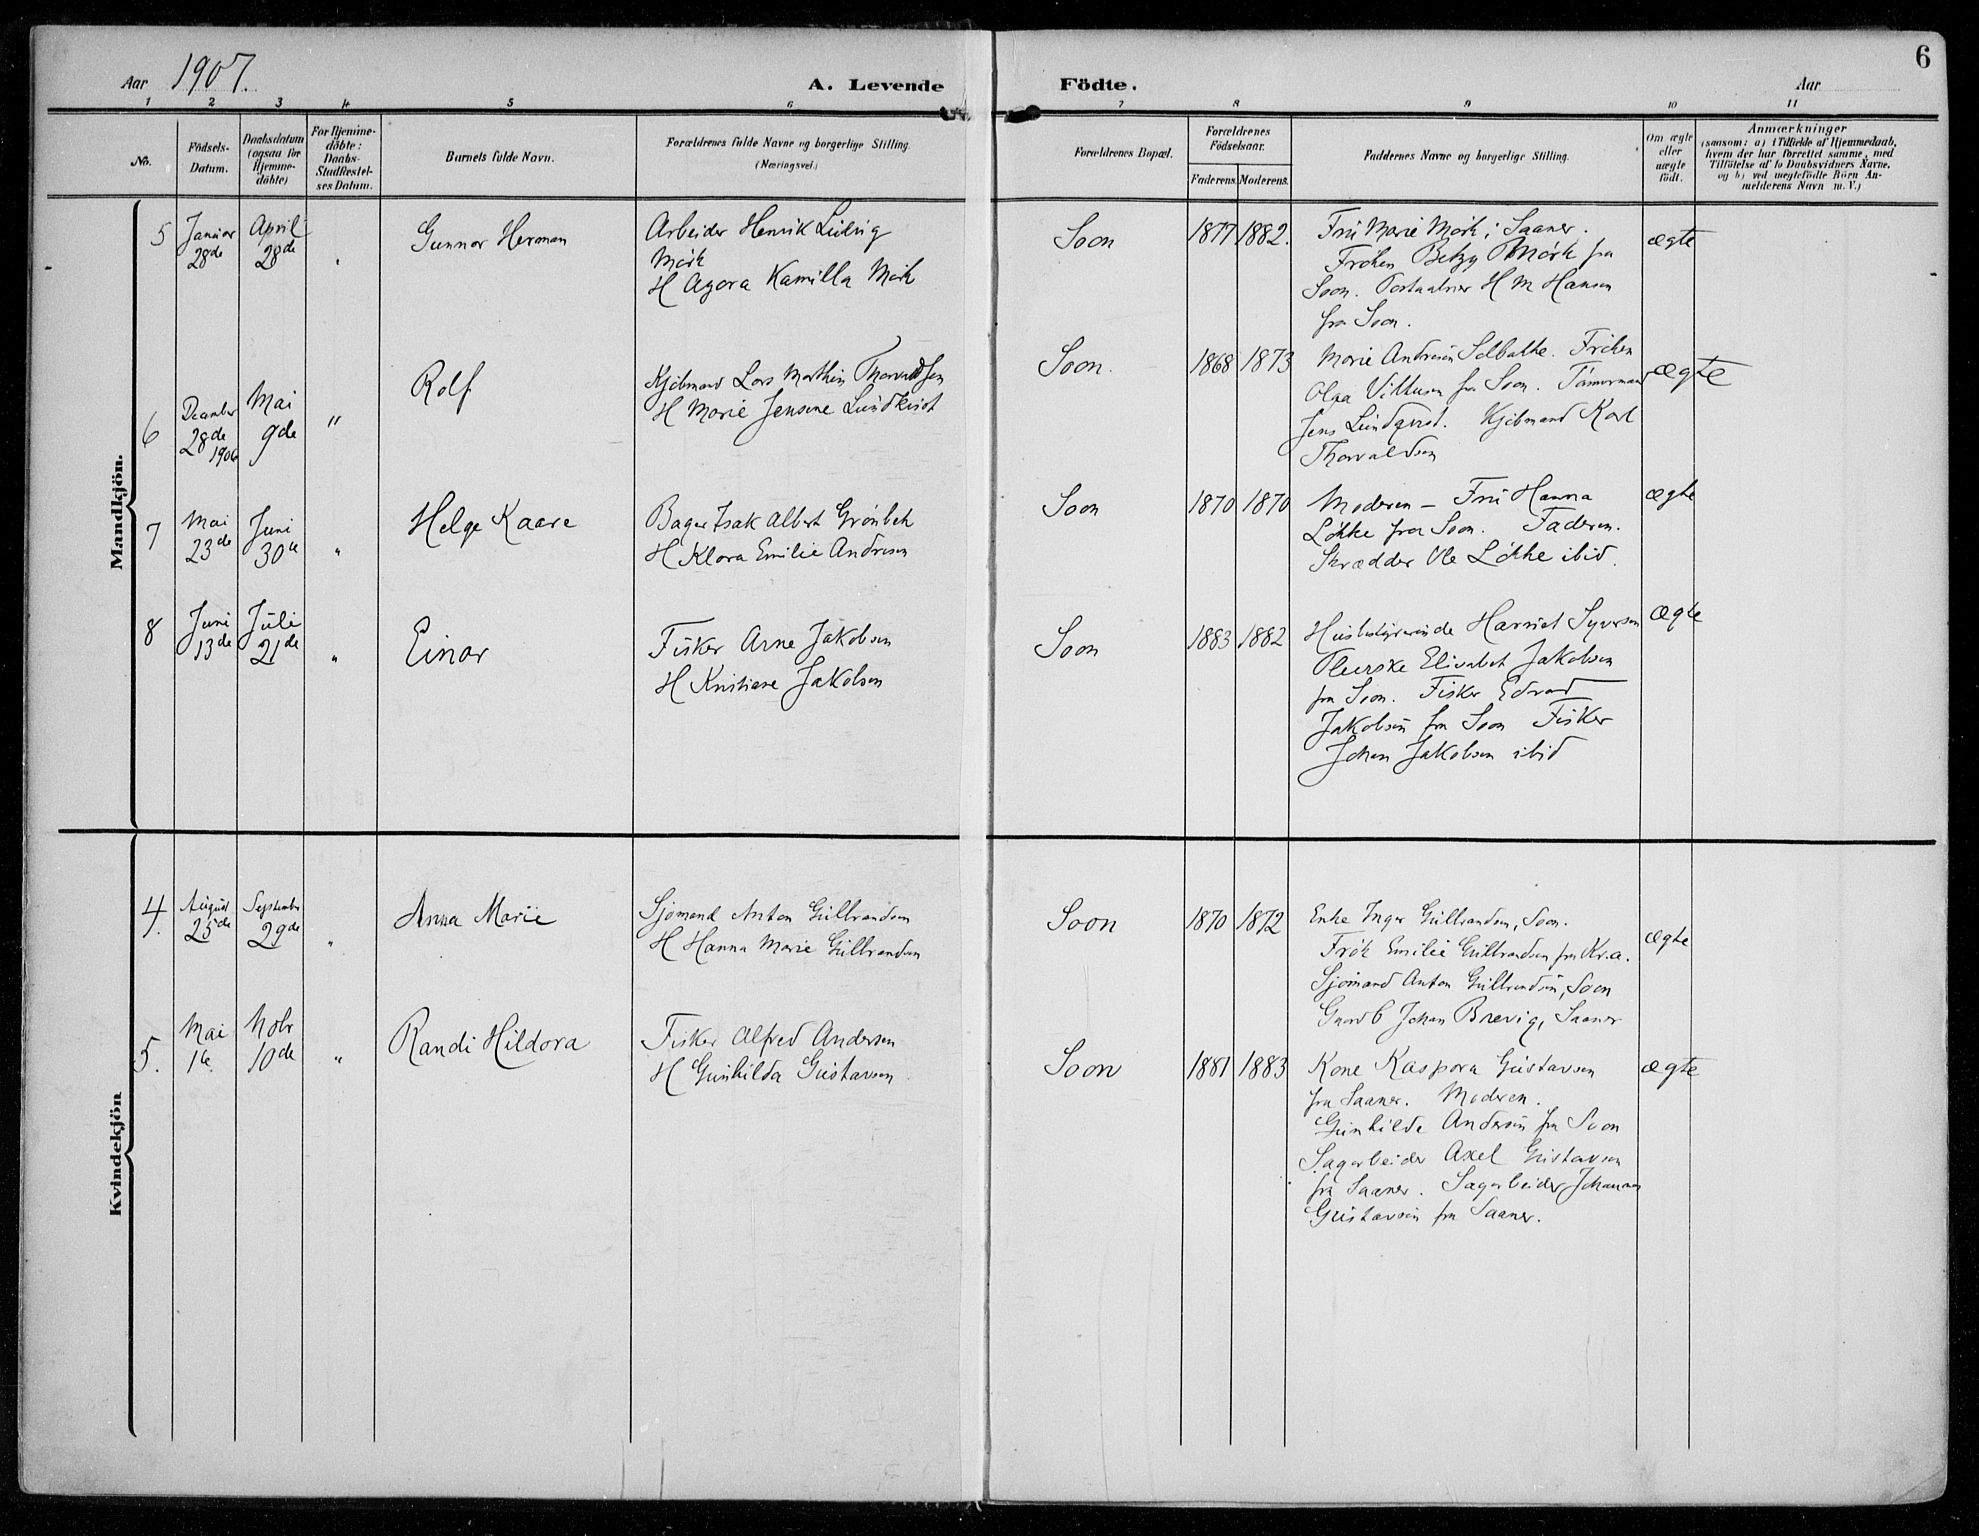 6
Aar 1907.
A. Levende Födte.
Aar
1 2 3 4 5 6 7 8 9 10 11
No.
Födsels-
Datum.
Daabsdatum
(ogsaa for
Hjemme-
döbte)
For Hjemme-
döbte:
Daabs-
Stadfæstel-
ses Datum.
Barnets fulde Navn.
Forældrenes fulde Navne og borgerlige Stilling.
(Næringsvei.)
Forældrenes Bopæl.
Forældrenes
Födselsaar.
Faderens. Moderens.
Faddernes Navne og borgerlige Stilling.
Om ægte
eller
uægte
födt.
Anmærkninger
(saasom: a) i Tilfælde af Hjemmedaab,
hvem der har forrettet samme, med
Tilföielse af to Daabsvidners Navne,
og b) ved uægtefödte Börn An-
melderens Navn m. V.)
Mandkjön.
5
Januar
28de
April
28de
"
Gunnar Herman
Arbeider Henrik Ludvig
Mörk
H Agora Kamilla Mörk
Soon
1877
1882.
Fru Marie Mörk i Saaner.
Fröken Betzy Mörk fra
Soon. H M Hansen
fra Soon.
ægte
6
December
28de
1906
Mai
9de
"
Rolf
Kjöbmand Lars Marthin Thorvaldsen
H Marie Jensine Lundkvist
Soon.
1868
1873
Marie Andresen Solbakke. Fröken
Olga fra Soon. Tömmermand
Jens Lundqvist. Kjöbmand Karl
Thorvaldsen
ægte
7
Mai
23de
Juni
30te
"
Helge Kaare
Bager Isak Albert Grönbek
H Klara Emilie Andresen
Soon
1870
1870
Moderen – Fru Hanna
Lökke fra Soon. Faderen.
Skrædder Ole Lökke ibid.
ægte
8
Juni
13de
Juli
21de
"
Einar
Fisker Arne Jakobsen
H Kristiane Jakobsen
Soon
1883
1882
Husbestyrerinde Harriet Syversen
Elisabet Jakobsen
fra Soon. Fisker Edvard
Jakobsen fra Soon Fisker
Johan Jakobsen ibid
ægte
Kvindekjön
4.
August
25de
September
29de
"
Anna Marie
Sjömand Anton Gulbrandsen
H Hanna Marie Gulbrandsen
Soon
1870
1872
Enke Inger Gulbrandsen, Soon.
Frök Emilie Gulbrandsen fra Kr.a.
Sjömand Anton Gulbrandsen, Soon
Gaardb Johan Brevig, Saaner
ægte
5.
Mai
1te.
Novbr
10de
"
Randi Hildora
Fisker Alfred Andersen
H Gunhilda Gustavsen
Soon
1881
1883
Kone Kaspara Gustavsen
fra Saaner. Moderen.
Gunhilde Andersen fra Soon
Sagarbeider Axel Gustavsen
fra Saaner. Sagarbeider Johannes
Gustavsen fra Saaner.
ægte